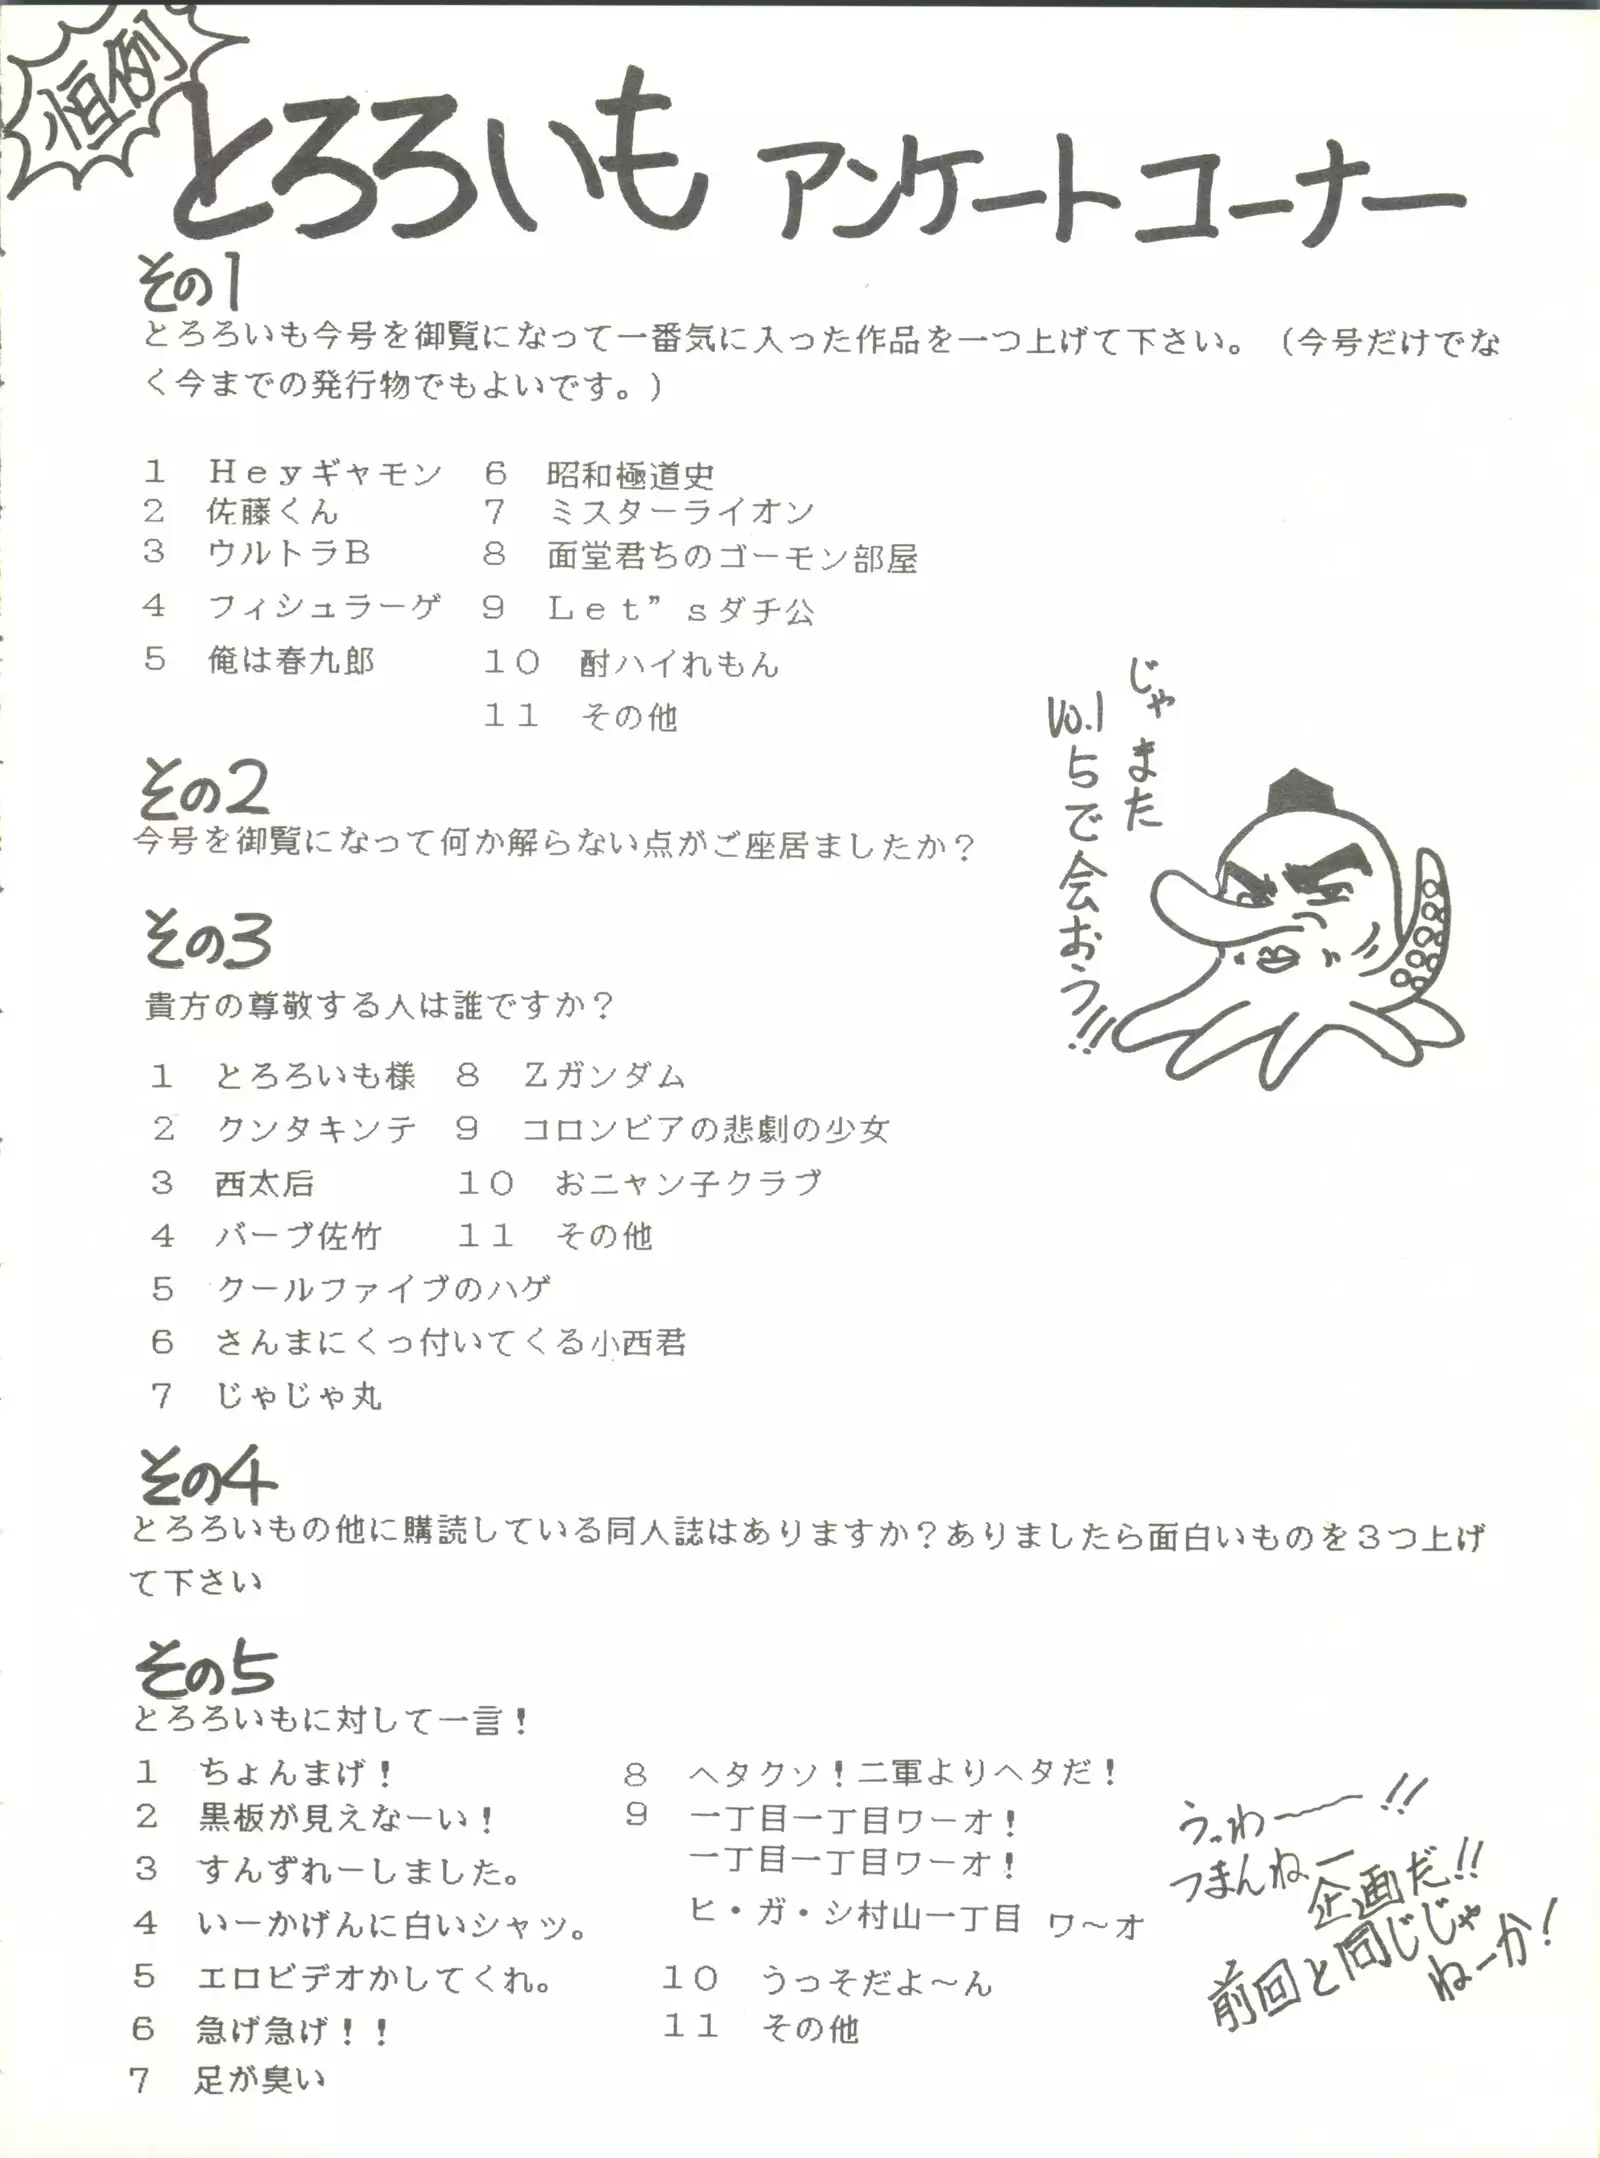 恒例
とろろいも アンケートコーナー
その1
とろろいも今号を御覧になって一番気に入った作品を一つ上げて下さい。(今号だけでな
く今までの発行物でもよいです。)
1 Heyギャモン
2 佐藤くん
3 ウルトラB
4 フィシュラーゲ
5 俺は春九郎
6 昭和極道史
7 ミスターライオン
8 面堂君ちのゴーモン部屋
9 Let”sダチ公
10 酎ハイれもん
11 その他
じゃまた
Vo.15で会おう!!
その2
今号を御覧になって何か解らない点がご座居ましたか?
その3
貴方の尊敬する人は誰ですか?
1 とろろいも様
2 クンタキンテ
3 西太后
4 バーブ佐竹
5 クールファイブのハゲ
6 さんまにくっ付いてくる小西君
7 じゃじゃ丸
8 Zガンダム
9 コロンビアの悲劇の少女
10 おニャン子クラブ
11 その他
その4
とろろいもの他に購読している同人誌はありますか?ありましたら面白いものを3つ上げ
て下さい
その5
とろろいもに対して一言!
1 ちょんまげ!
2 黒板が見えなーい!
3 すんずれーしました。
4 いーかげんに白いシャツ。
5 エロビデオかしてくれ。
6 急げ急げ!!
7 足が臭い
8 ヘタクソ!二軍よりヘタだ!
9 一丁目一丁目ワーオ!
一丁目一丁目ワーオ!
ヒ・ガ・シ村山一丁目 ワ~オ
10 うっそだよ~ん
11 その他
うっわ〜〜!!
つまんねー
企画だ!!
前回と同じじゃ
ねーか!